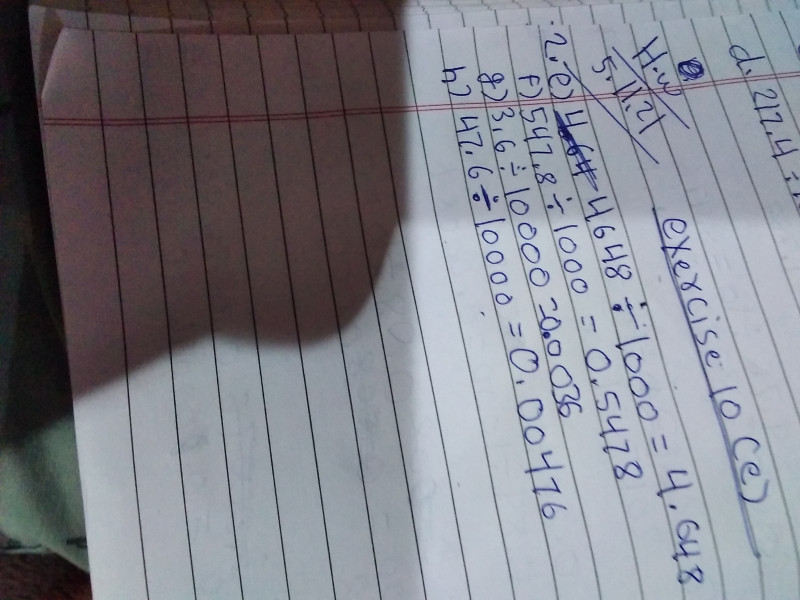 d. 217.4 ÷
H.W
5.11.21
exercise 10 (e)
2. e) 4648 ÷ 1000 = 4.648
f) 547.8 ÷ 1000 = 0.5478
g) 3.6 ÷ 10000 = 0.0036
h) 47.6 ÷ 10000 = 0.00476